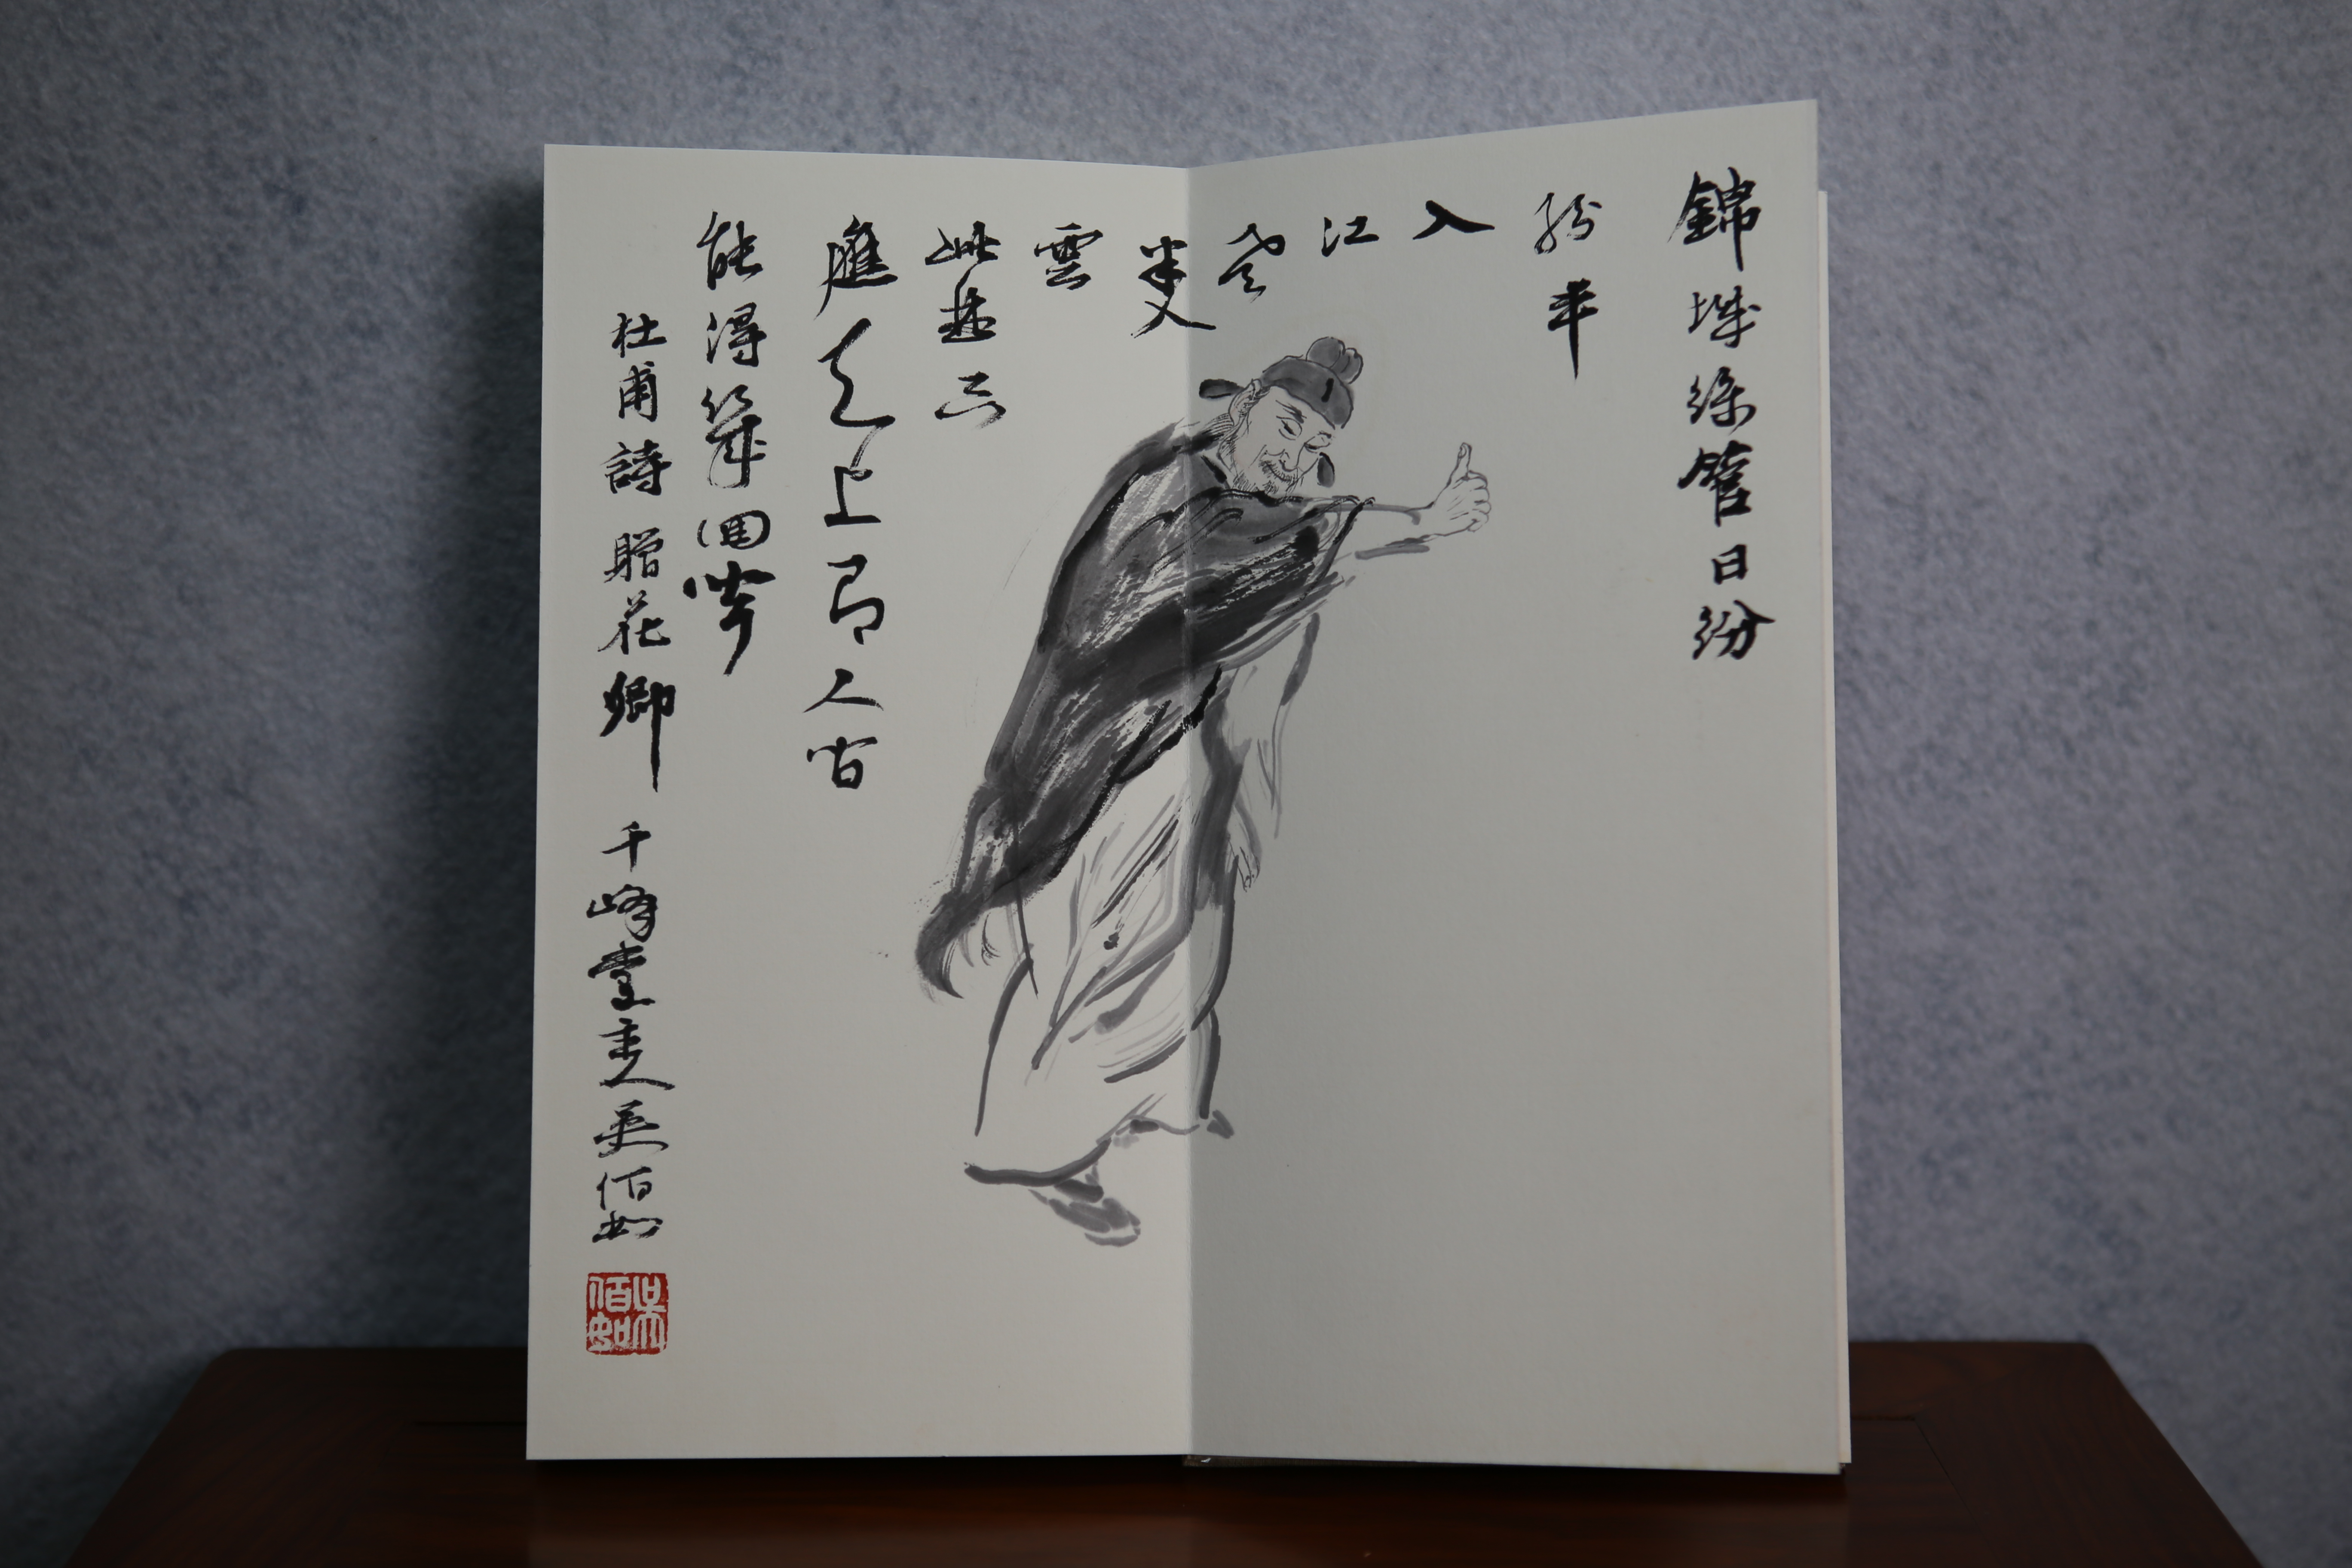 錦城絲管日紛
紛半
入
江
風
半入
雲
此曲只
應天上有人間
能得幾回聞
杜甫詩 贈花卿 千峰堂主人吳佰如
吳佰如